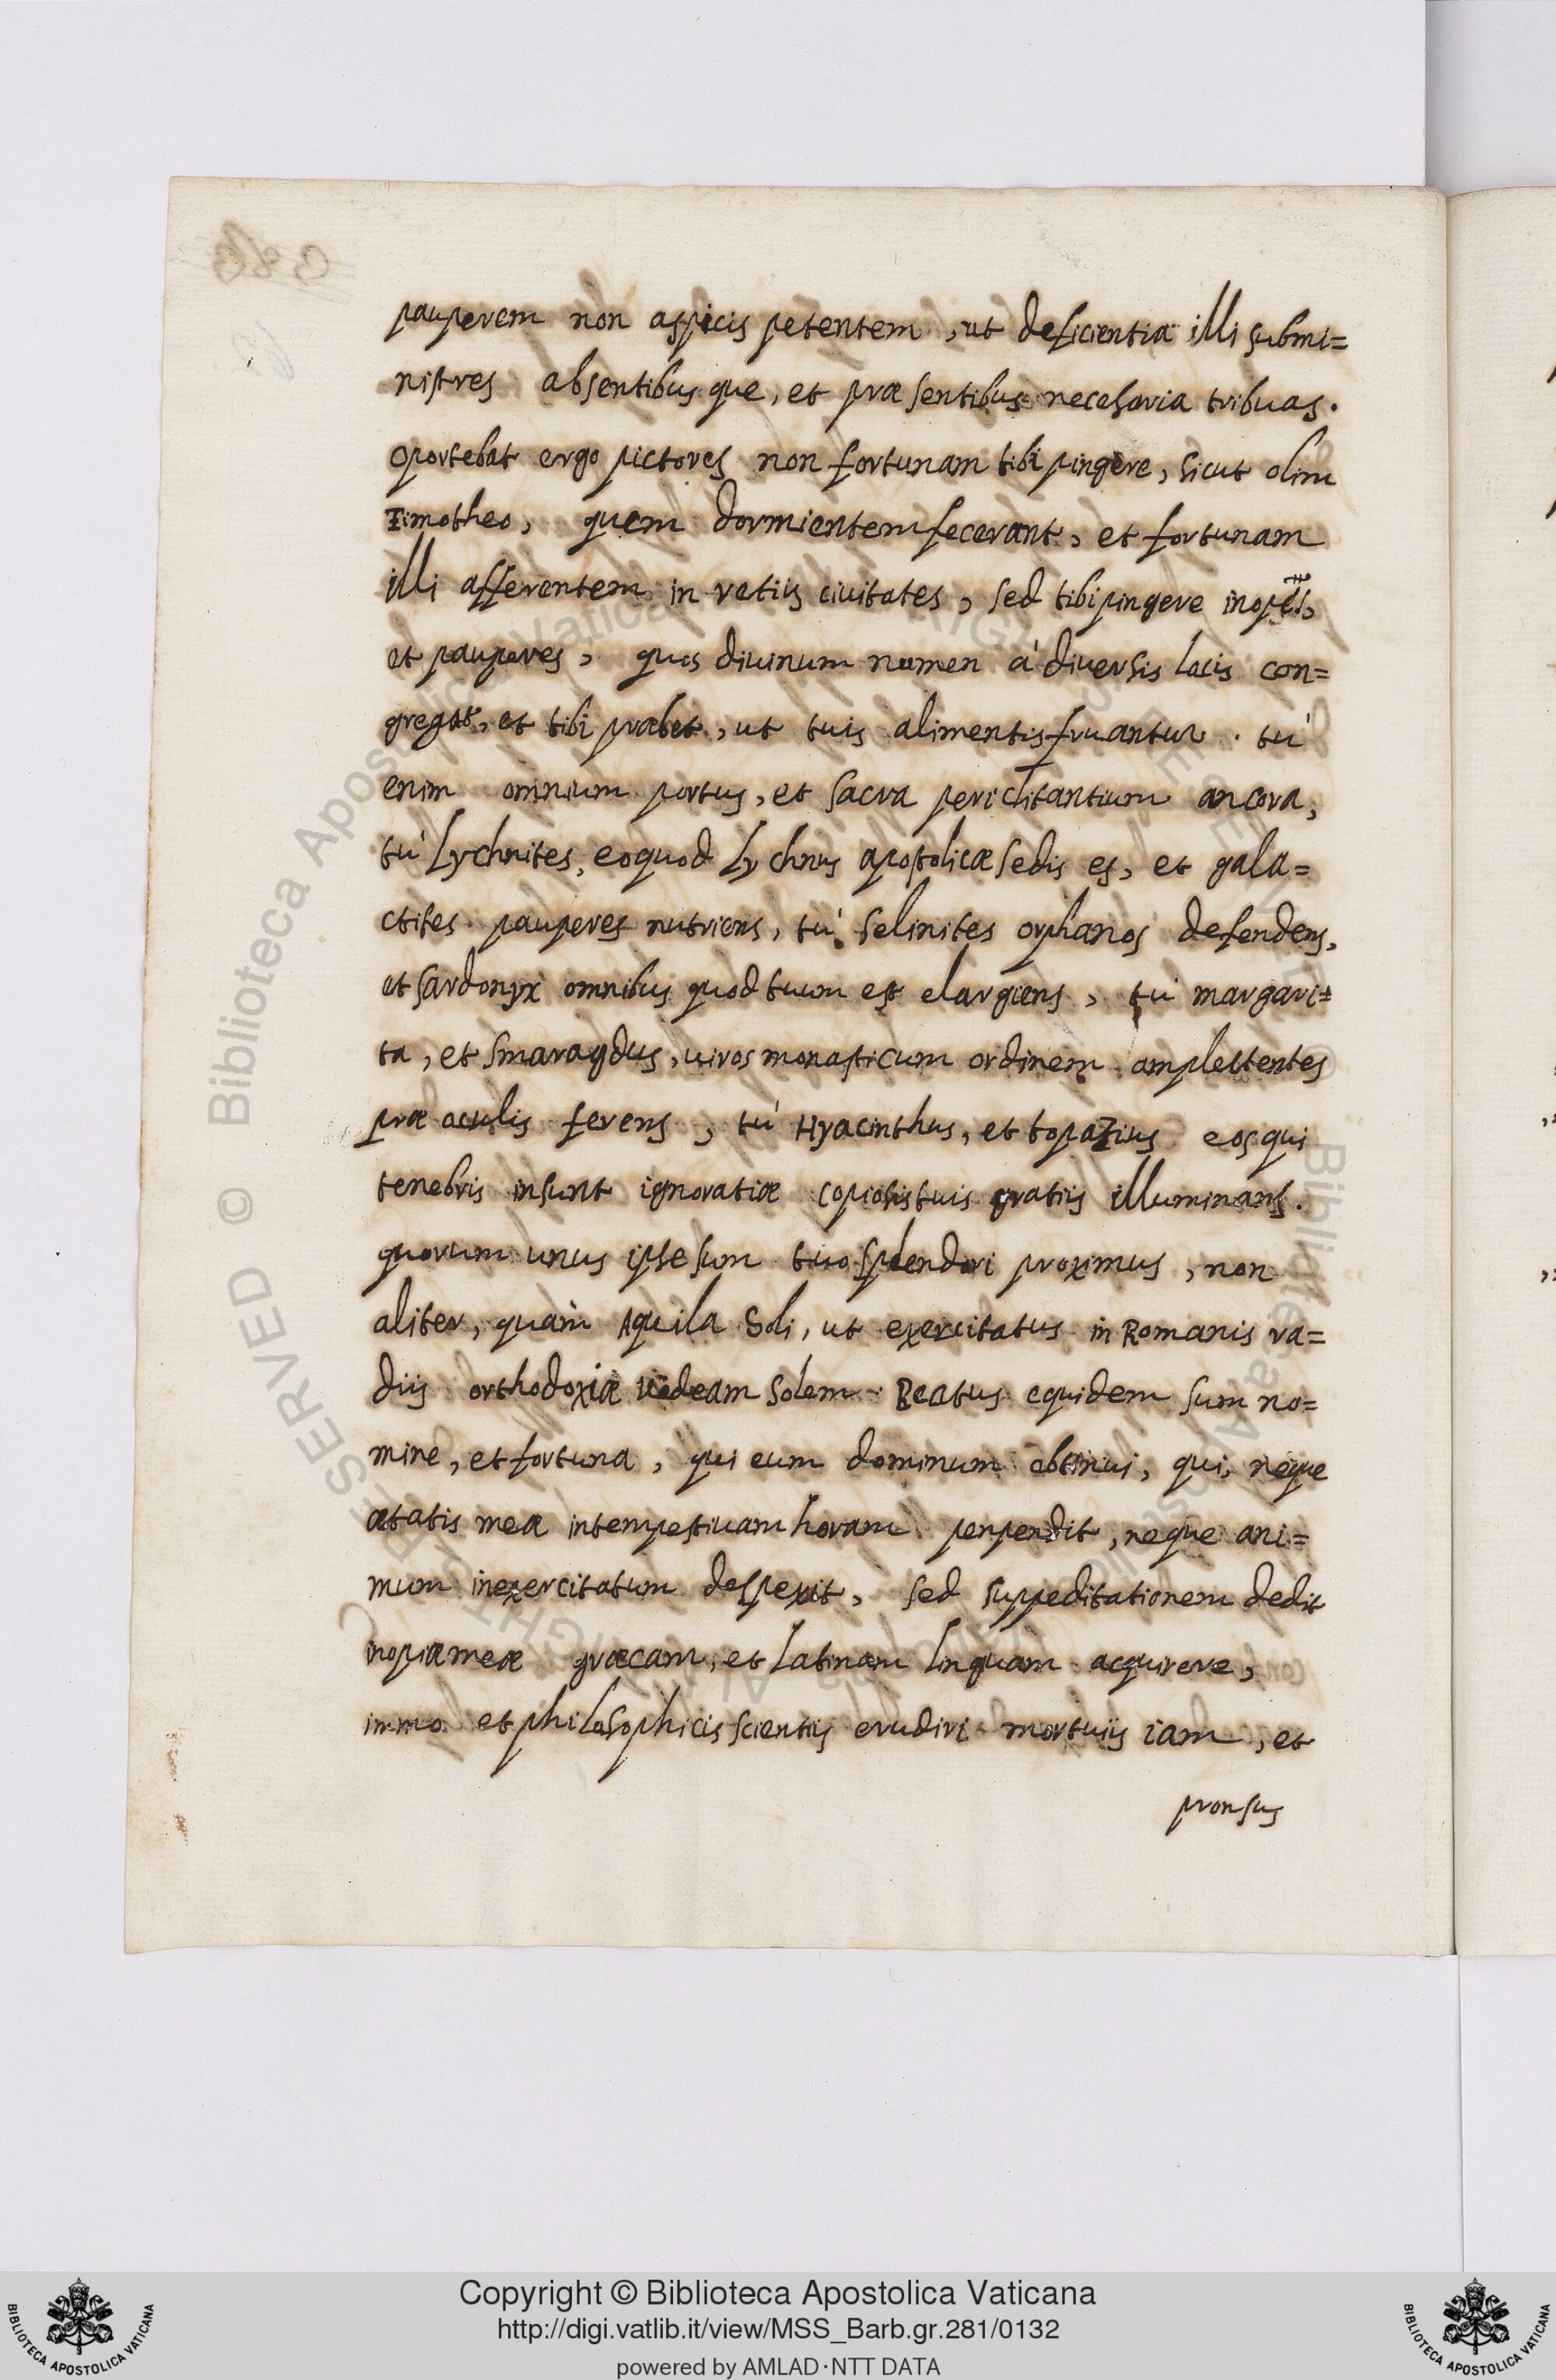 pauperem non aspicis petentem, ut deficientia illi submi=
nistres absentibusque, et præsentibus necessaria tribuas.
oportebat ergo pictores non fortunam tibi pingere, sicut olim
Timotheo, quem dormientem fecerant, et fortunam
illi afferentem in retiis ciuitates, sed tibi pingere inopes,
et pauperes, quos diuinum numen à diuersis locis con=
gregat, et tibi præbet, ut tuis alimentis fruantur. tù
enim omnium portus, et sacra periclitantium ancora,
tù Lychnites, eoquod Lychnus apostolicæ sedis es, et gala=
ctites pauperes nutriens, tù selinites orphanos defendens,
et sardonyx omnibus quod tuum est elargiens, tù margari=
ta, et smaragdus, uiros monasticum ordinem amplettentes
præ oculis ferens, tù Hyacinthus, et topazius eos qui
tenebris insunt ignoratiæ copiosis tuis gratiis illuminans.
quorum unus ipse sum tuo splendori proximus, non
aliter, quàm Aquila Soli, ut exercitatus in Romanis ra=
diis orthodoxiæ uideam Solem. Beatus equidem sum no=
mine, et fortuna, qui eum dominum obtinui, qui, neque
ætatis meæ intempestiuam horam perpendit, neque ani=
mum inexercitatum despexit, sed suppeditationem dedit
inopiæ meæ græcam, et Latinam linguam acquirere,
immo et philosophicis scientiis erudiri mortuis iam, et
prorsus
Copyright © Biblioteca Apostolica Vaticana
http://digi.vatlib.it/view/MSS_Barb.gr.281/0132
powered by AMLAD·NTT DATA
BIBLIOTECA APOSTOLICA VATICANA
BIBLIOTECA APOSTOLICA VATICANA